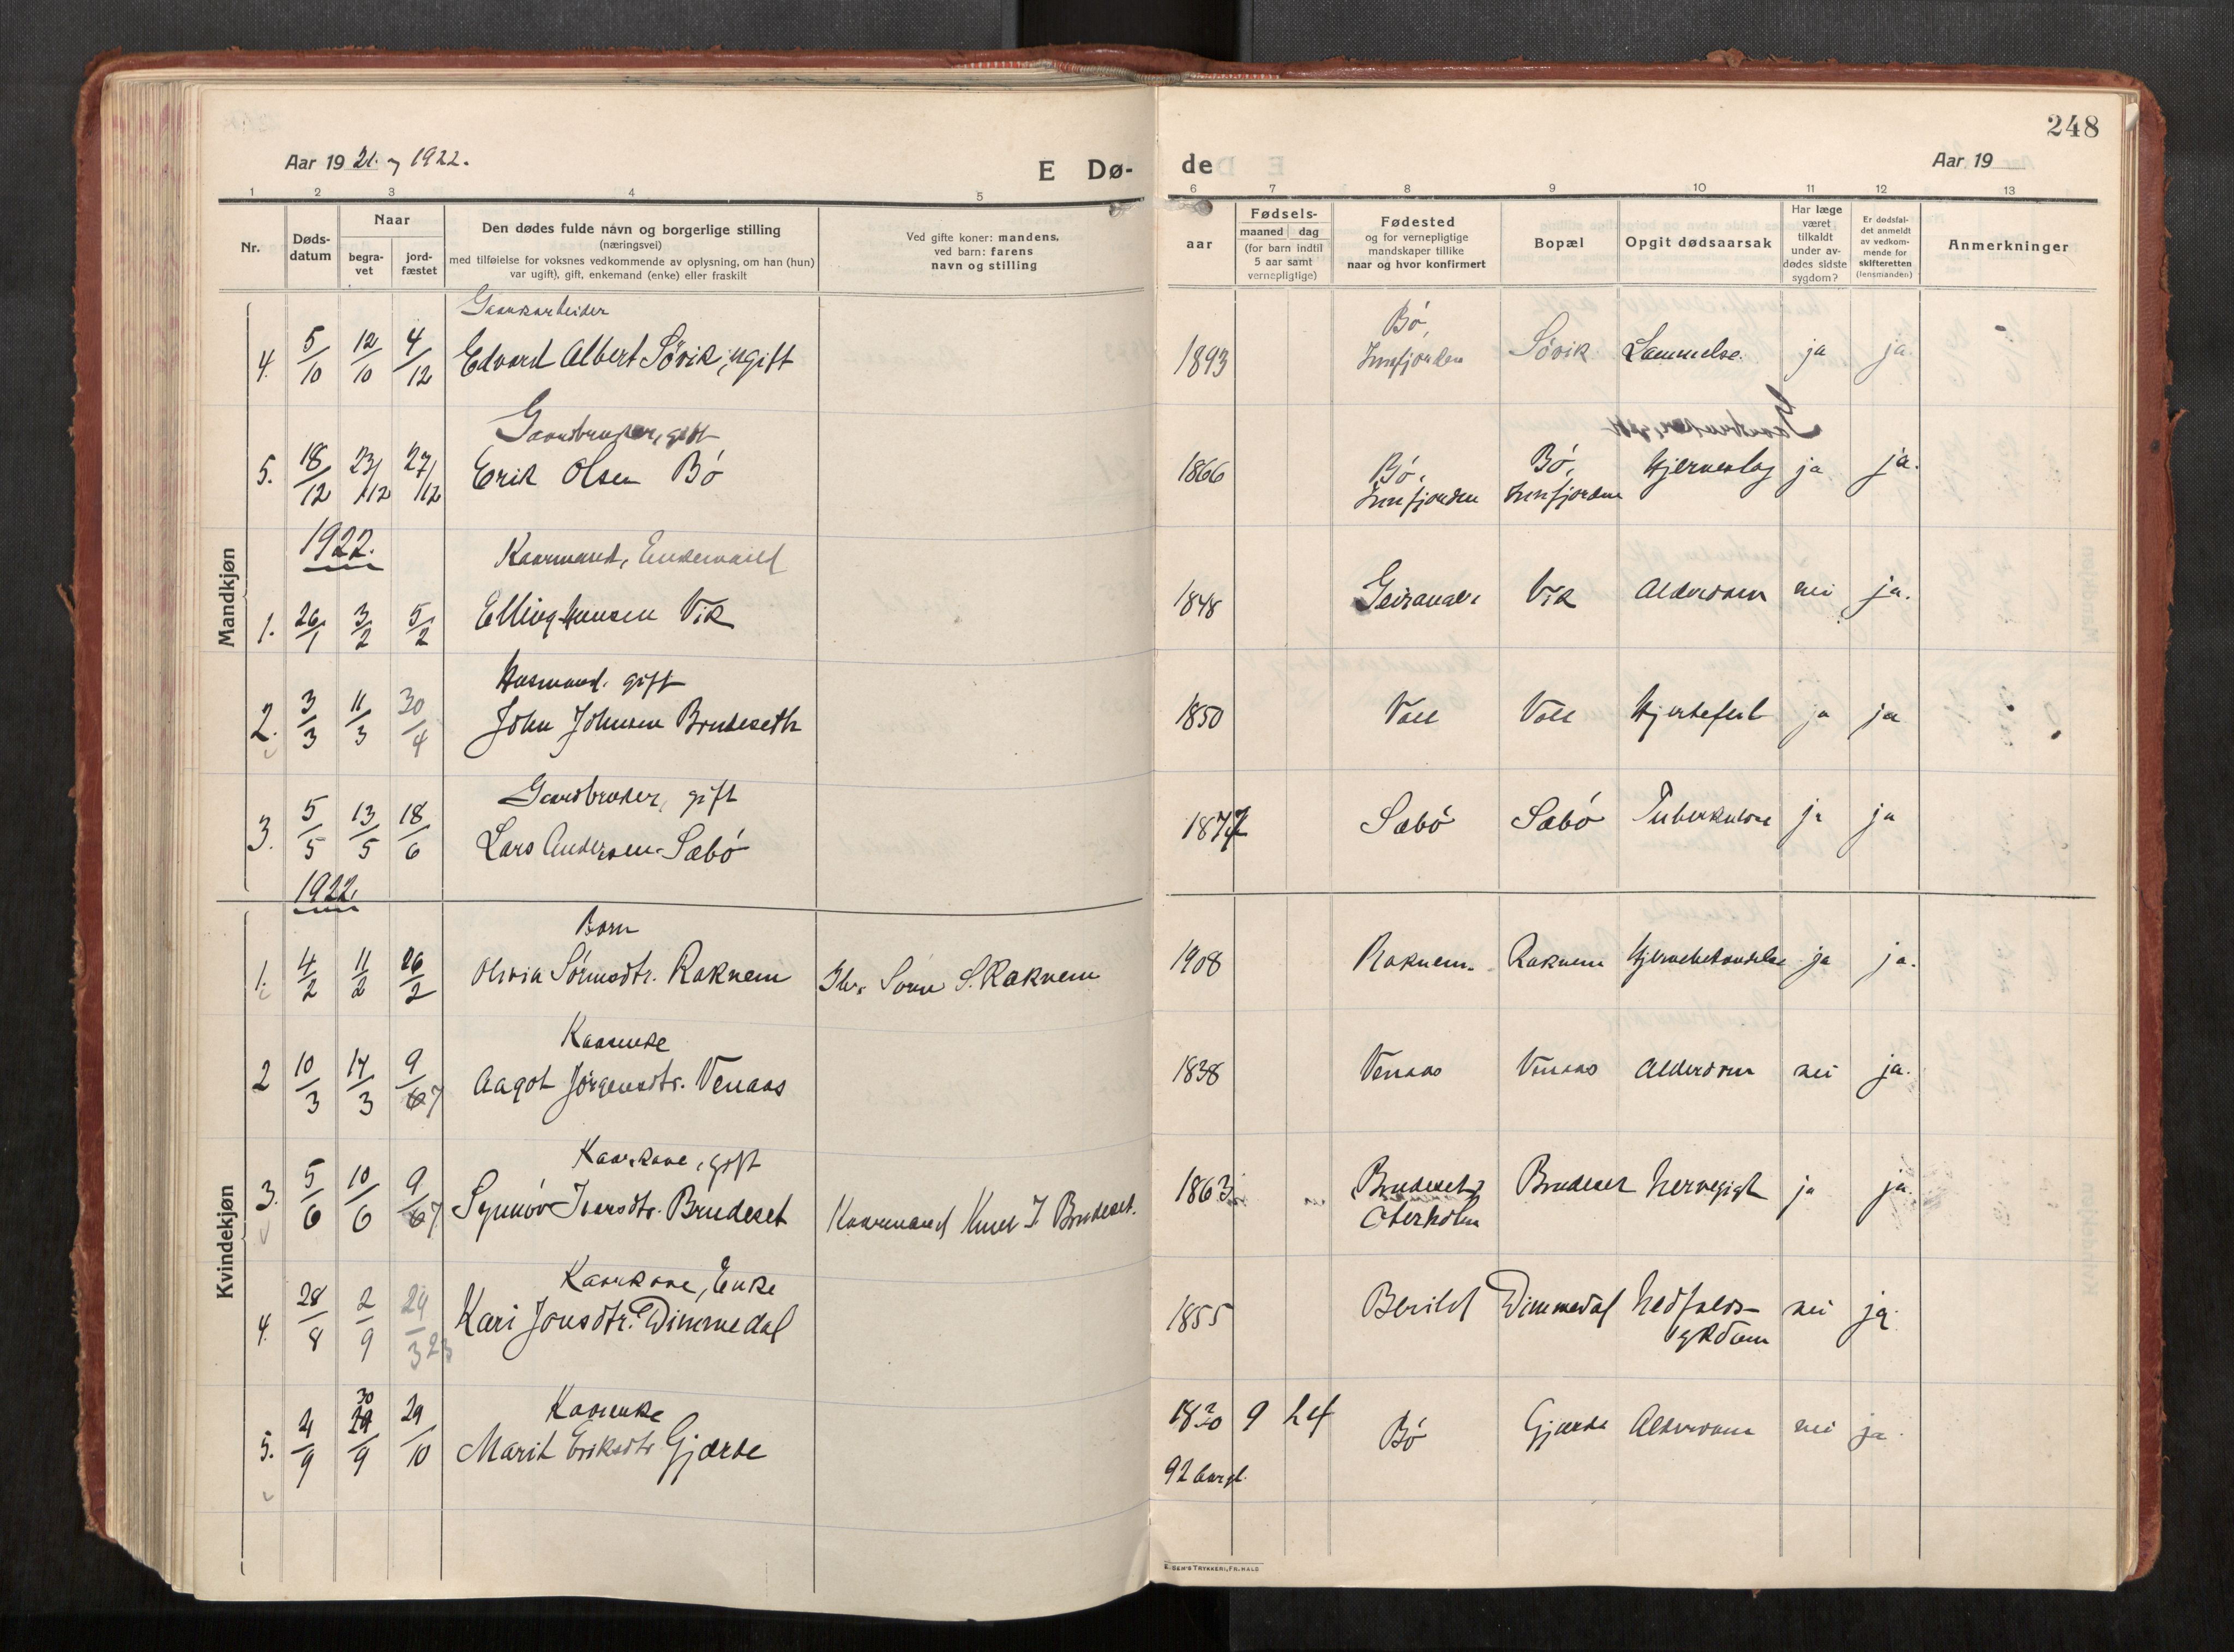 248
Aar 19 21. og 1922.
E Dø-
de
Aar 19
1 2 3 4 5 6 7 8 9 10 11 12 13
Nr.
Døds-
datum
Naar
begra-
vet
jord-
fæstet
Den dødes fulde navn og borgerlige stilling
(næringsvei)
med tilføielse for voksnes vedkommende av oplysning, om han (hun)
var ugift), gift, enkemand (enke) eller fraskilt
Ved gifte koner: mandens,
ved barn: farens
navn og stilling
aar
Fødsels-
maaned dag
(for barn indtil
5 aar samt
vernepligtige)
Fødested
og for vernepligtige
mandskaper tillike
naar og hvor konfirmert
Bopæl
Opgit dødsaarsak
Har læge
været
tilkaldt
under av-
dødes sidste
sygdom?
Er dødsfal-
det anmeldt
av vedkom-
mende for
skifteretten
(lensmanden)
Anmerkninger
Mandkjøn
Gaardsarbeider
4. 5/10 12/10 4/12 Edvard Albert Sövik, ugift 1893 Bö, Innfjorden Sövik Lammelse. ja ja.
Gaardbruker, gift
5. 18/12 23/12 27/12 Erik Olsen Bö 1866 Bö, Innfjorden Bö, Innfjorden Hjerneslag ja ja.
1922.
Kaarmand, Enkemand
1. 26/1 3/2 5/2 Elling Hansen Vik 1848 Geiranger Vik Alderdom nei ja.
Husmand. gift
2. 3/3 11/3 30/4 John Johnsen Brudeseth 1850 Voll Voll Hjertefeil ja ja
Gaardbruker, gift
3. 5/5 13/5 18/6 Lars Andersen Sæbö 1877 Sæbö Sæbö Tuberkulose ja ja
1922.
Kvindekjøn
Barn
1. 4/2 11/2 26/2 Olivia Sörensdtr. Raknem Sören S. Raknem 1908 Raknem. Raknem Hjernebetændelse ja ja.
Kaarenke
2 10/3 14/3 9/7 Aagot Jörgensdtr. Venaas 1838 Venaas Venaas Alderdom nei ja.
Kaarkone, gift
3. 5/6 10/6 9/7 Synnöv Iversdtr. Brudeset Kaarmand Knut J. Brudeset. 1863 Brudeset, Brudeset Nervegigt ja ja
Kaarkone, Enke
4. 28/8 2/9 29/3 23 Kari Jonsdtr. Dimmedal 1855 Berild Dimmedal Nedfalds-
sykdom nei ja.
Kaarenke
5. 4/9 30/9 29/10 Marit Eriksdtr Gjærde 1830 9 24 Bö Gjærde Alderdom nei ja.
E. SEM'S TRYKKERI, FR.HALD